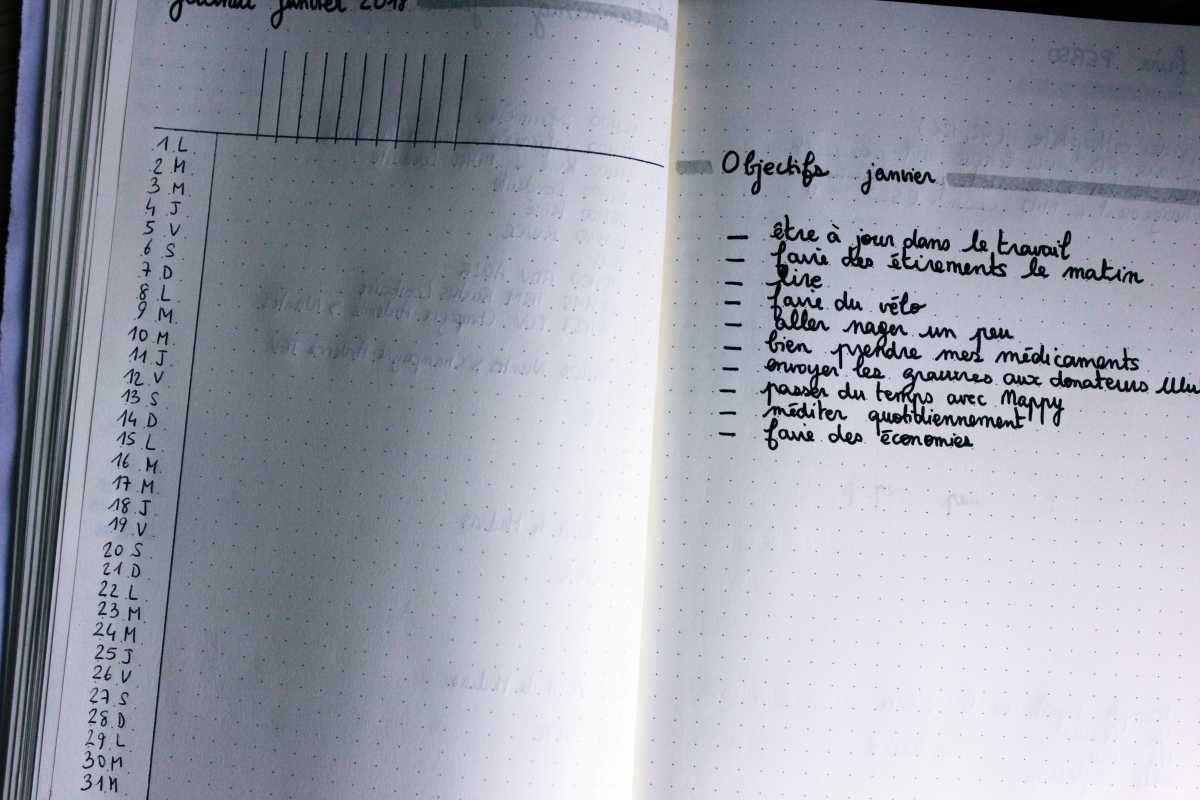 journal janvier 2018
1.L
2 M
3 M
4 J
5 V
6 S
7 D
8 L
9 M
10 M
11 J
12 V
13 S
14 D
15 L
16 M
17 M
18 J
19 V
20 S
21 D
22 L
23 M
24 M
25 J
26 V
27 S
28 D
29 L
30.M
31.M
Objectifs janvier
— être à jour dans le travail
— faire des étirements le matin
— lire
— faire du vélo
— aller nager un peu
— bien prendre mes médicaments
— envoyer les gravures aux donateurs
— passer du temps avec Mappy
— méditer quotidiennement
— faire des économies